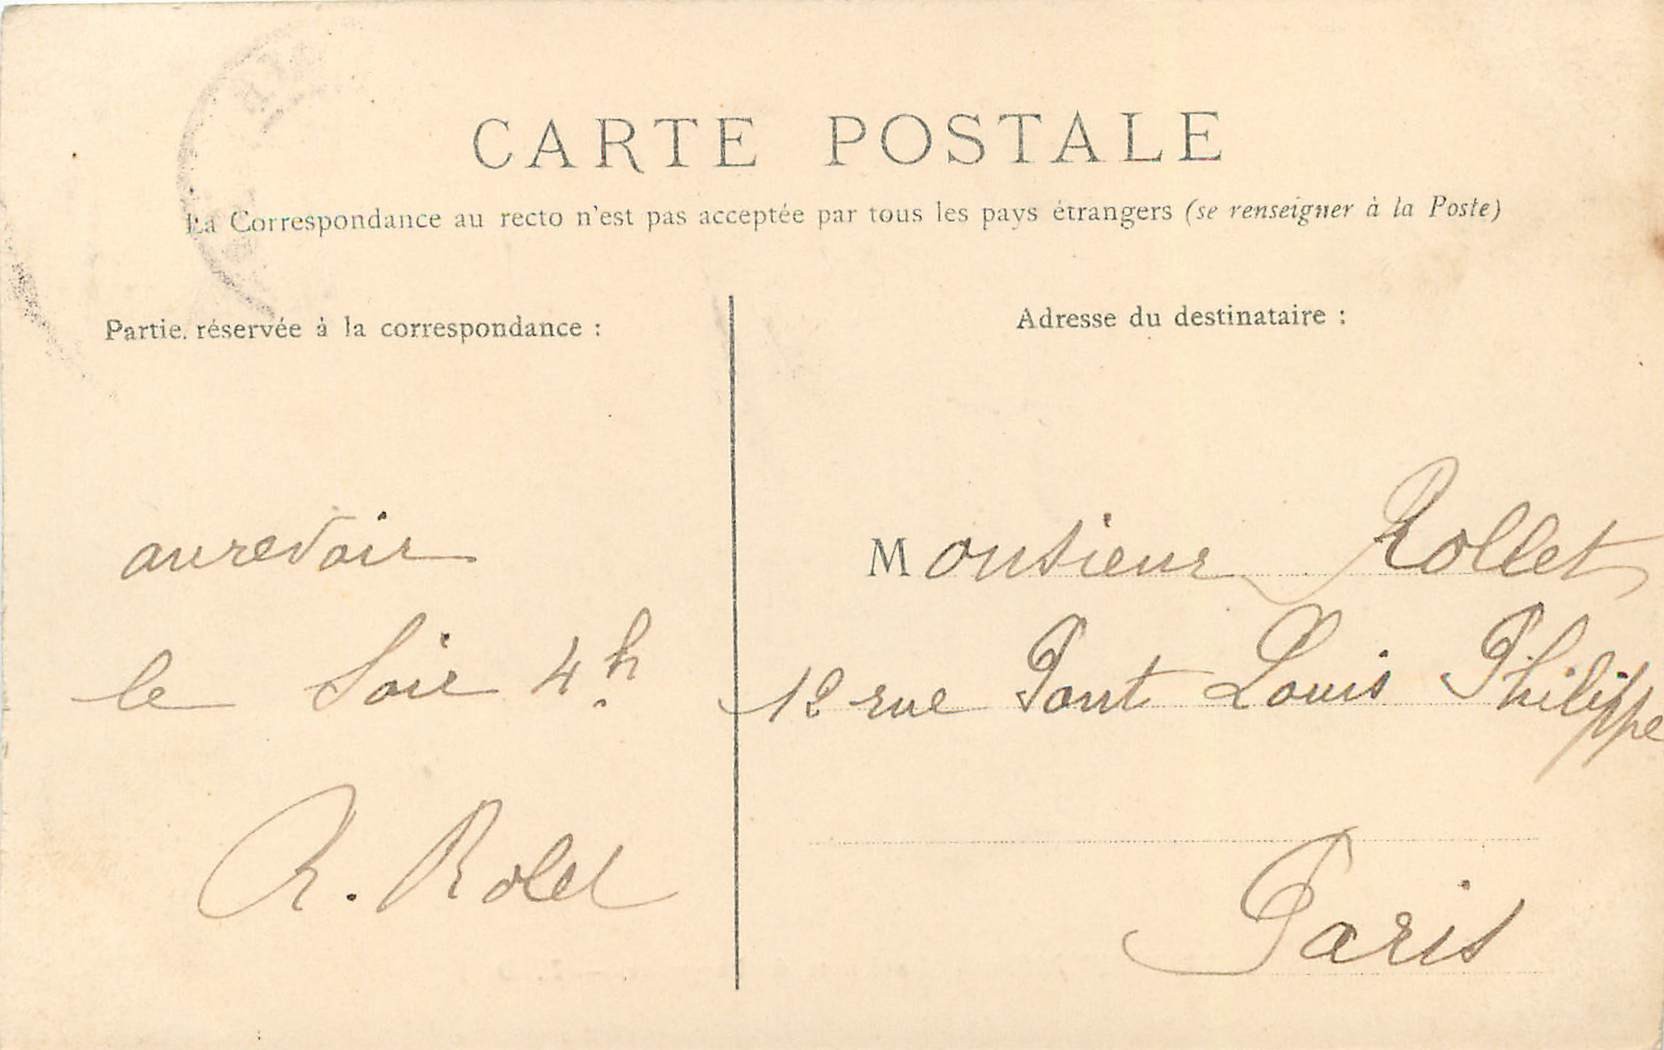 CARTE POSTALE
La Correspondance au recto n'est pas acceptée par tous les pays étrangers (se renseigner à la Poste)
Partie réservée à la correspondance :
aurevoir
le Soir 4h.
R. Rolet
Adresse du destinataire :
Monsieur Rollet
12 rue Pont Louis Philippe
Paris